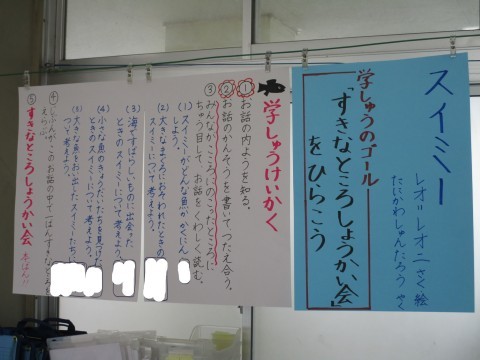 スイミー
レオ=レオニ さく 絵
たにかわしゅんたろう やく
学しゅうのゴール
「すきなところしょうかい会」
をひらこう
学しゅうけいかく
① お話の内ようを知る。
② お話のかんそうを書いてつたえ合う。
③ みんながこころにのこったところに
ちゅう目して、お話をくわしく読む。
(1) スイミーがどんな魚かかくにん
しよう。
(2) 大きなまぐろにおそわれたときの
スイミーについて考えよう。
(3) 海ですばらしいものに出会った
ときのスイミーについて考えよう。
(4) 小さな魚のきょうだいたちを見つけた
ときのスイミーについて考えよう。
(5) 大きな魚をおい出したスイミーたちに
ついて考えよう。
④ じぶんがこのお話の中で一ばんすきなところを
えらぶ。
⑤ すきなところしょうかい会